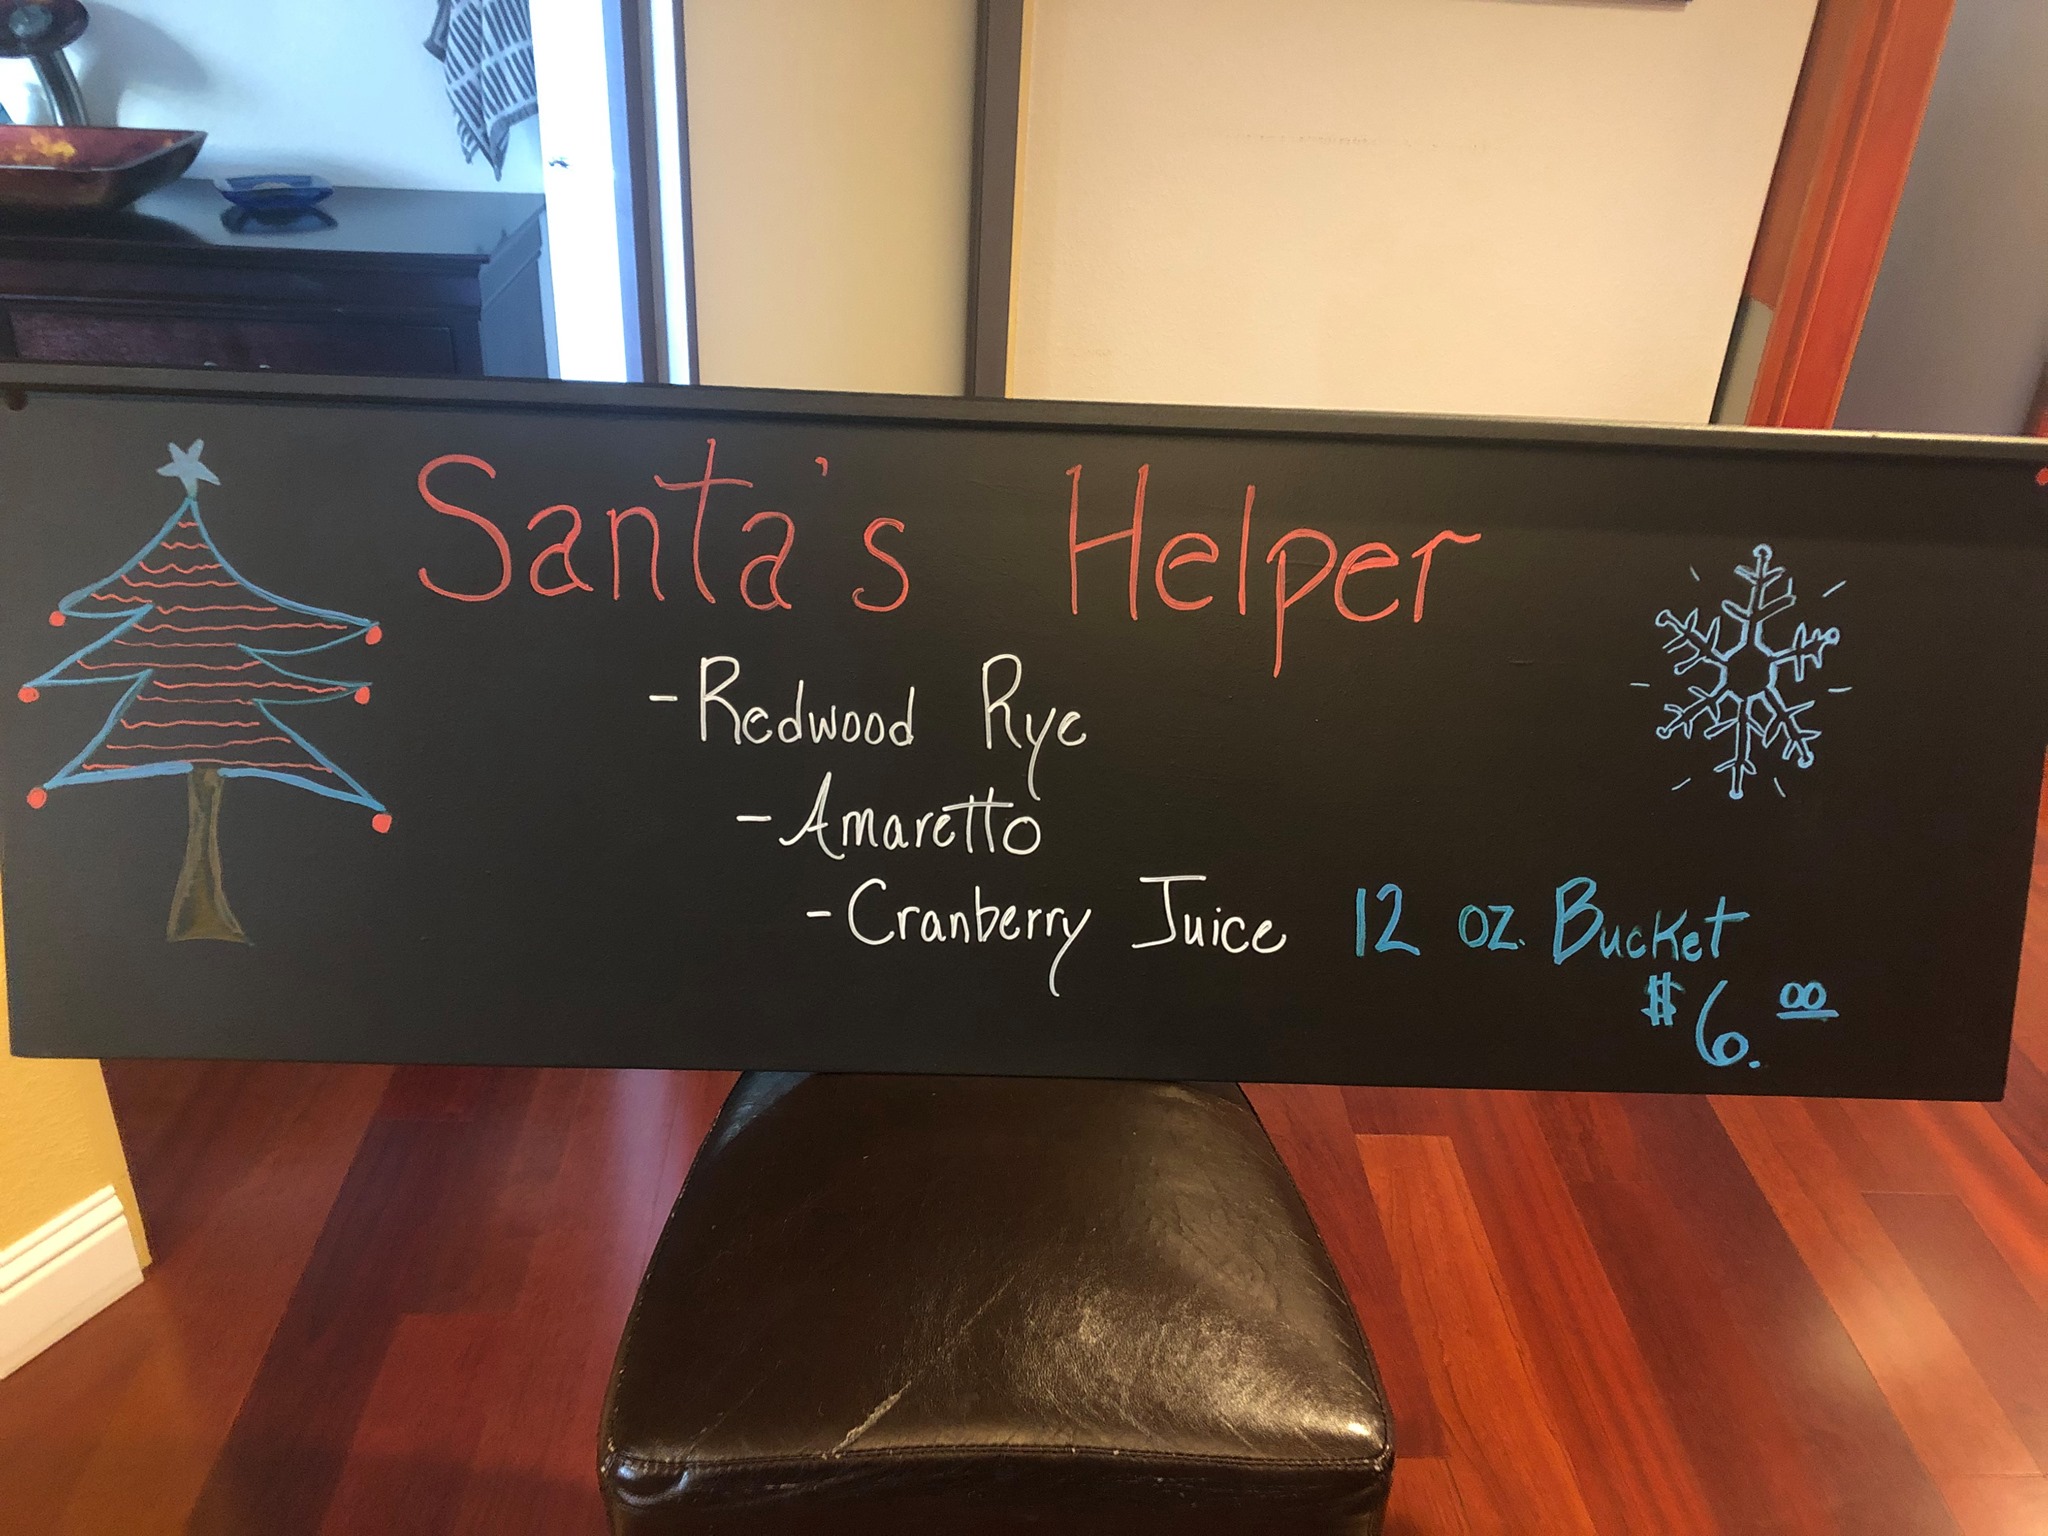 Santa's Helper
- Redwood Rye
- Amaretto
- Cranberry Juice 12 oz. Bucket
$6.00